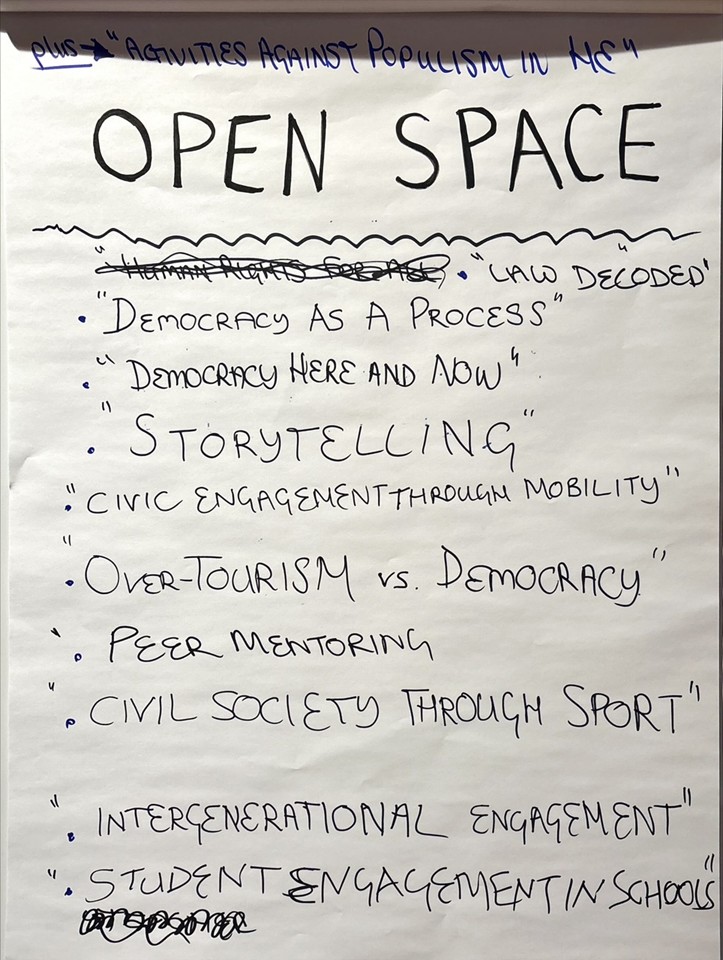 plus→ "ACTIVITIES AGAINST POPULISM IN HE"
OPEN SPACE
• "LAW DECODED"
• "DEMOCRACY AS A PROCESS"
• "DEMOCRACY HERE AND NOW"
• "STORYTELLING"
• "CIVIC ENGAGEMENT THROUGH MOBILITY"
• "OVER-TOURISM vs. DEMOCRACY"
• "PEER MENTORING
• "CIVIL SOCIETY THROUGH SPORT"
• "INTERGENERATIONAL ENGAGEMENT"
• "STUDENT ENGAGEMENT IN SCHOOLS"